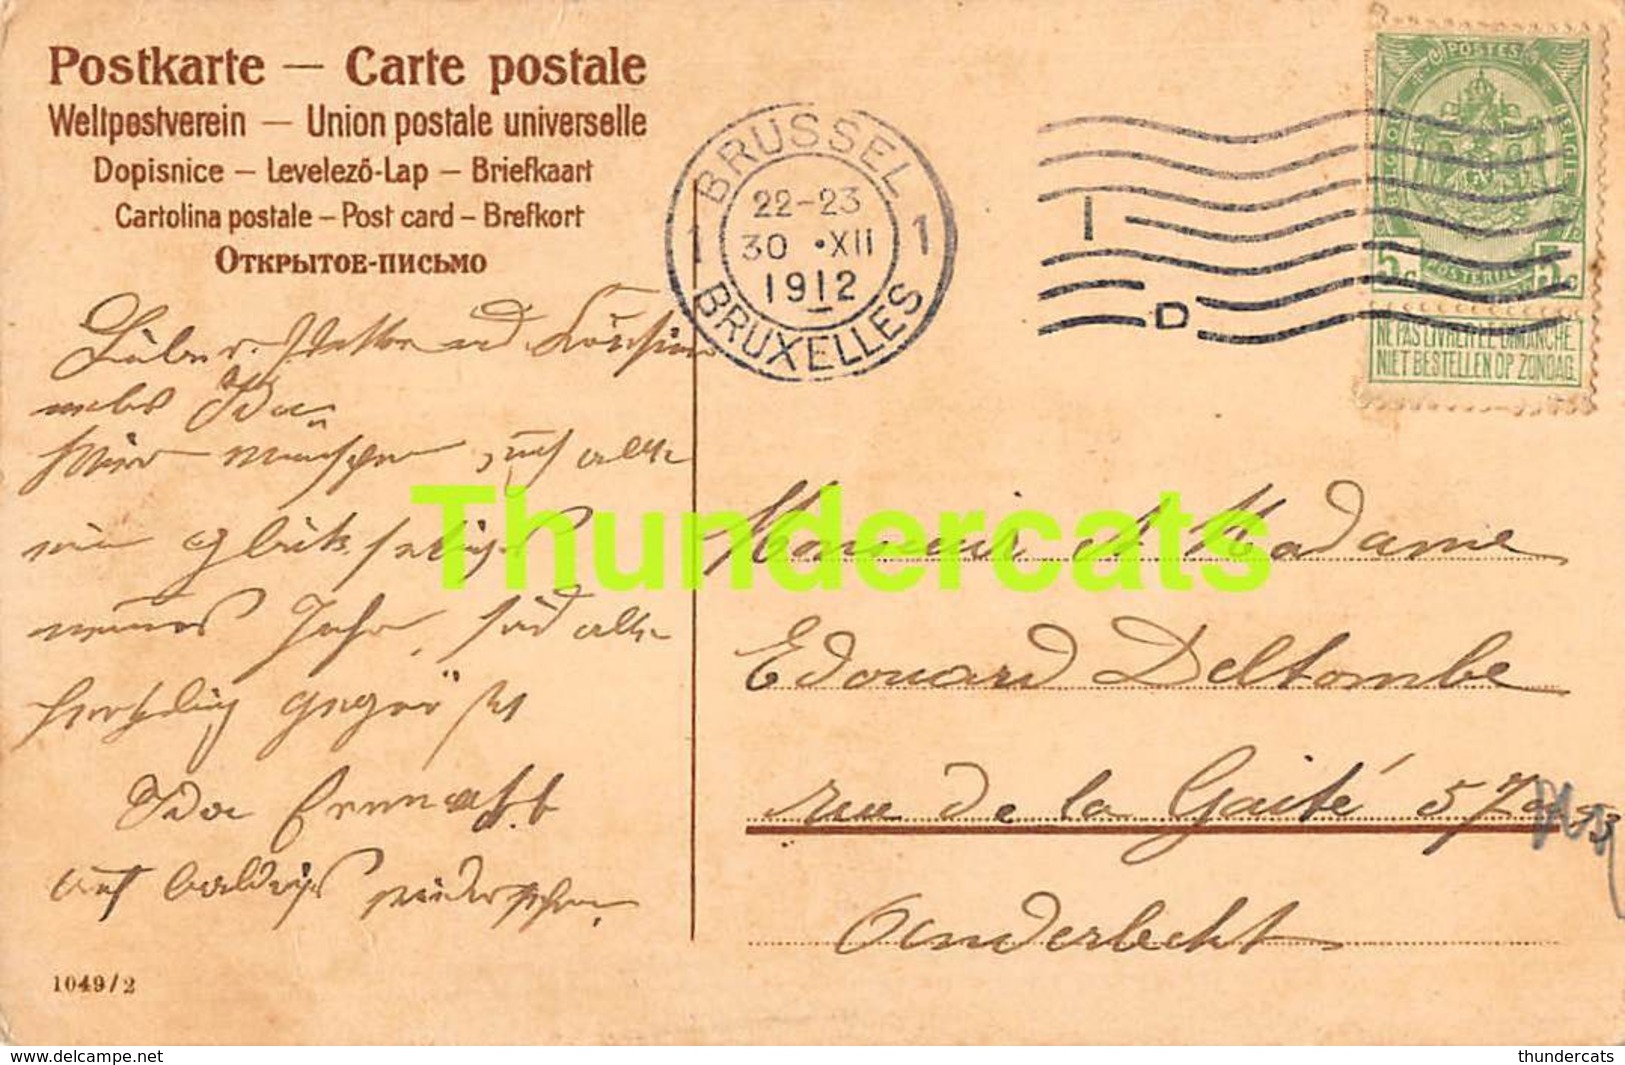 Postkarte — Carte postale
Weltpostverein — Union postale universelle
Dopisnice — Levelező-Lap — Briefkaart
Cartolina postale — Post card — Brefkort
Открытое-письмо
BRUSSEL
22-23
30 • XII
1912
1 1
BRUXELLES
I
D
POSTES
BELGIQUE BELGIE
5c POSTERIJEN 5c
NE PAS LIVRER LE DIMANCHE
NIET BESTELLEN OP ZONDAG
und
Ida
alle
glükseliges
neues Jahr, seid alle
herzlig gegrüßt
Ida
auf baldiges wiedersehen
Monsieur et Madame
Edouard Deltombe
rue de la Gaité 57
Anderlecht
1049/2
Thundercats
www.delcampe.net
thundercats